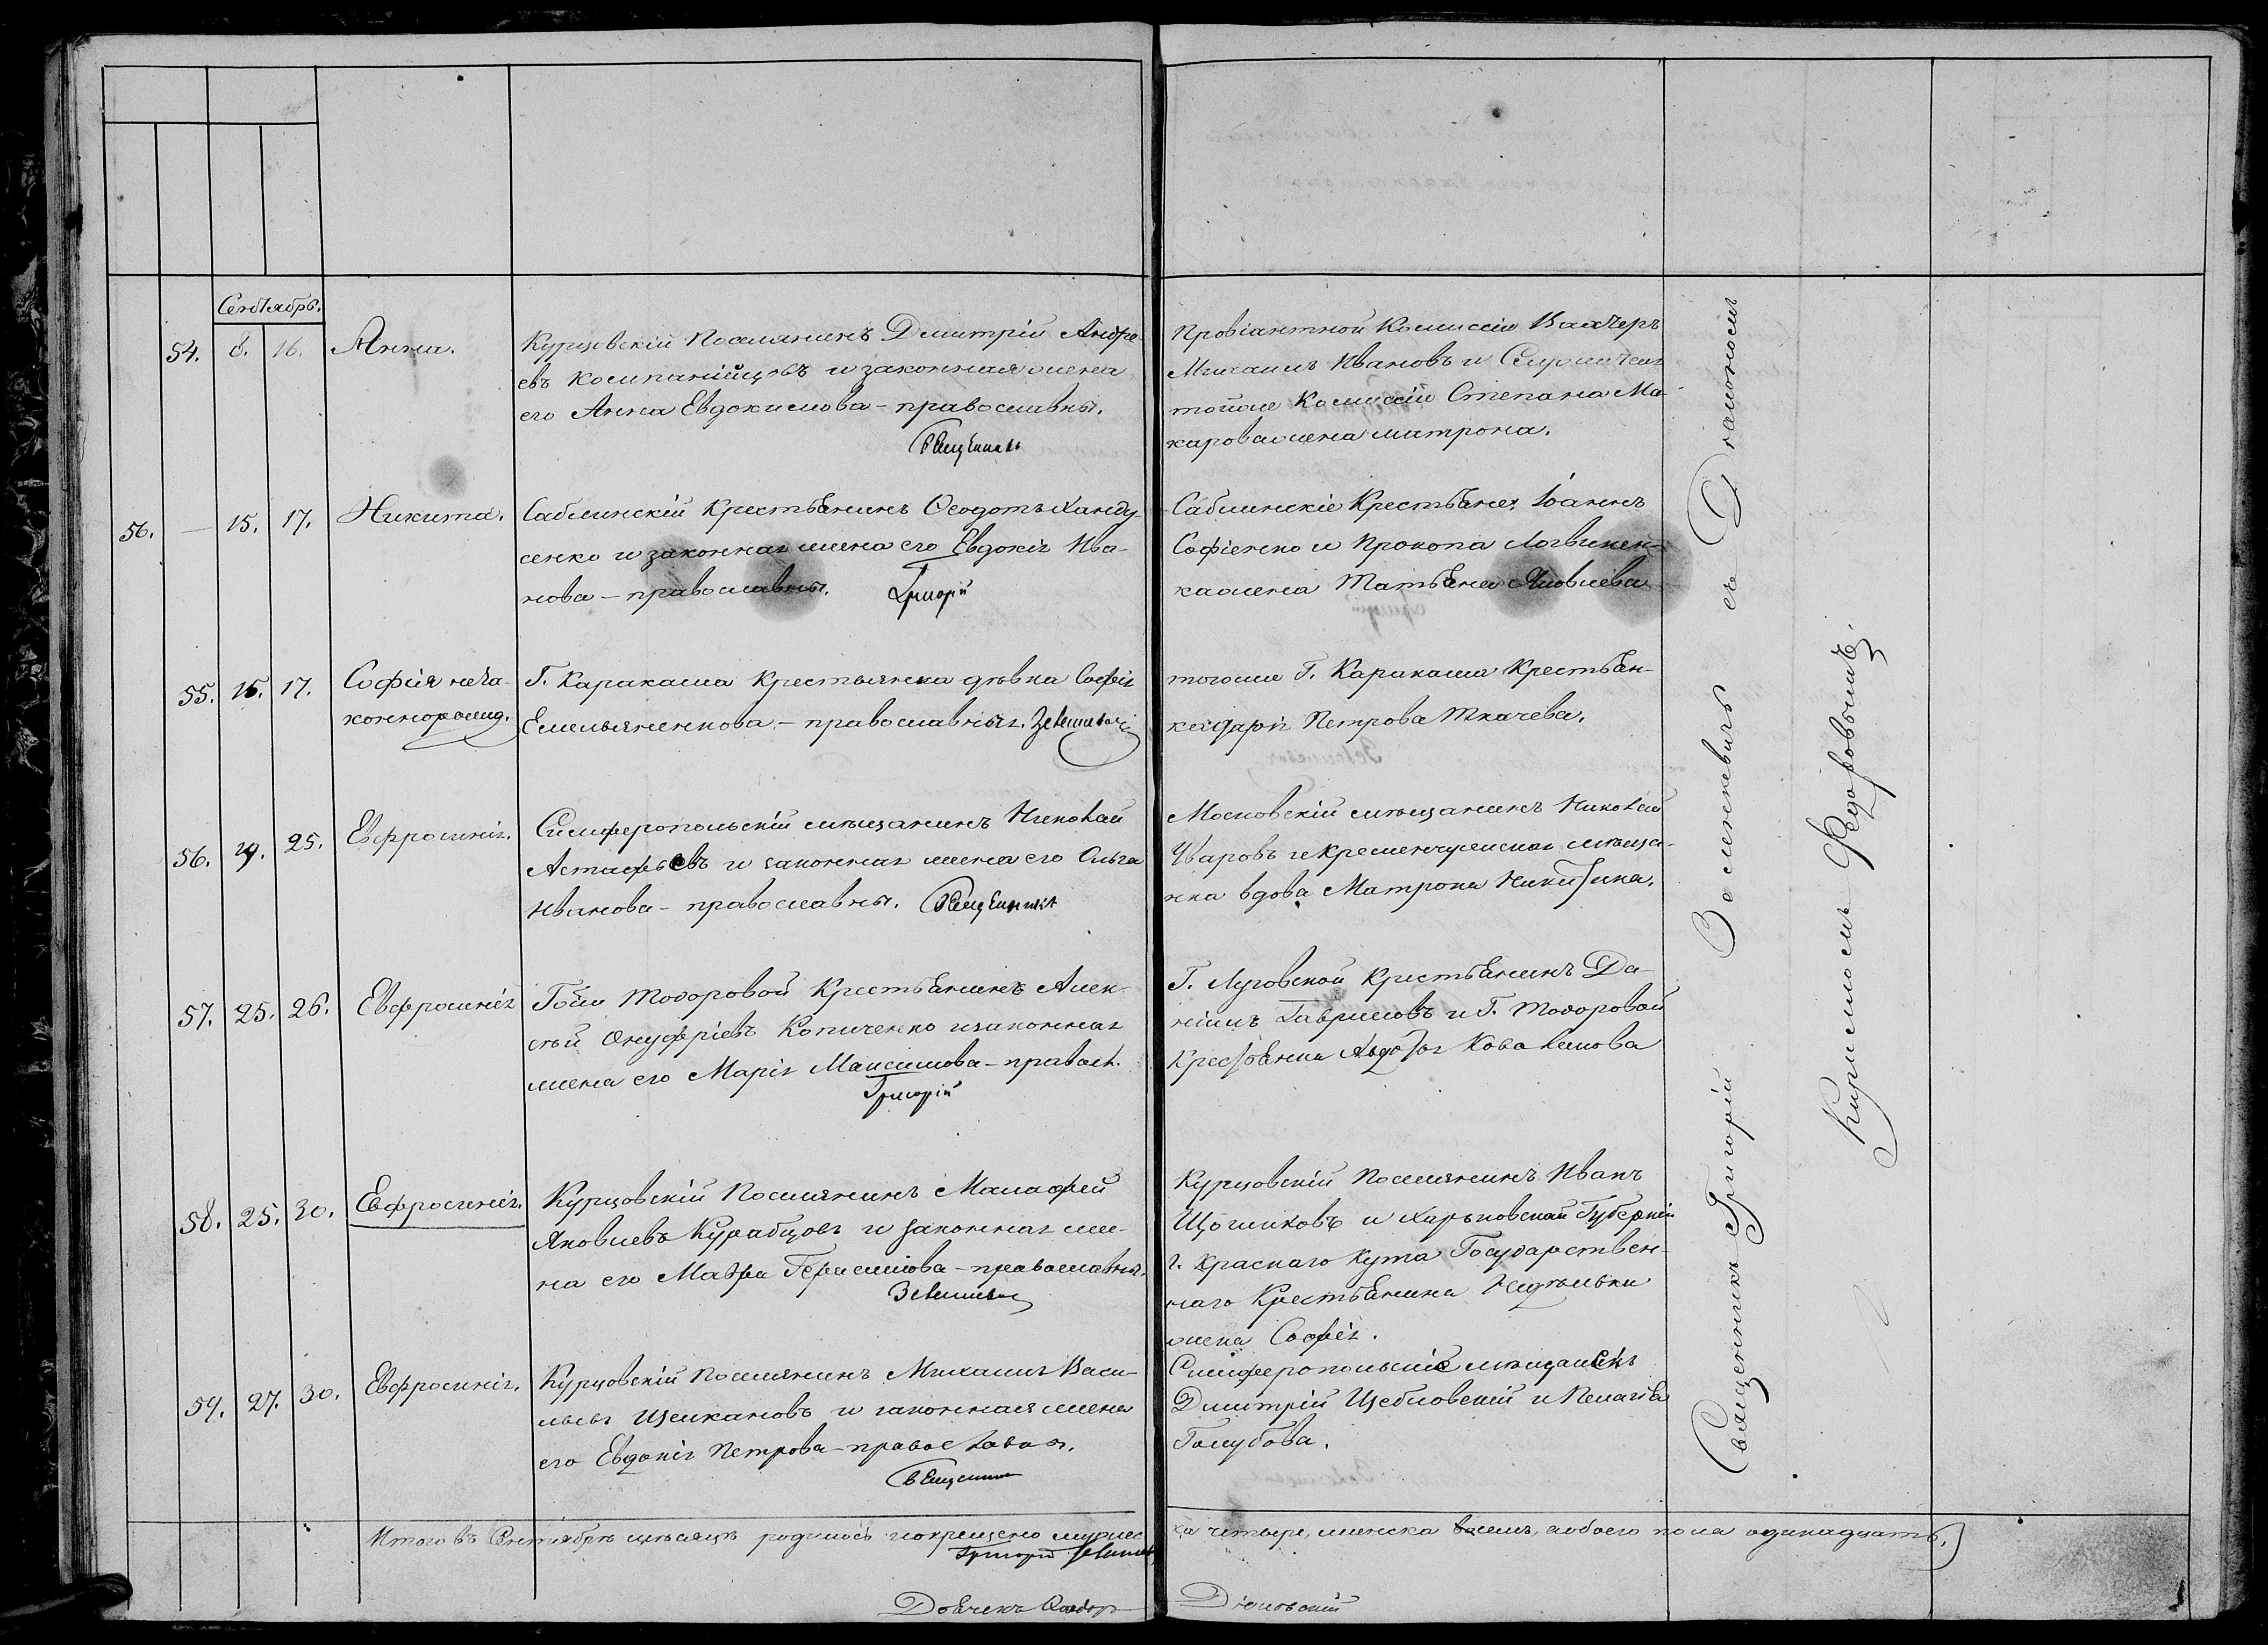 Сентябрь.
54. 8. 16. Анна.
Курцовскій Поселянинъ Дмитрій Андре-
евъ Компанійцовъ и законная жена
его Анна Евдокимова - православны.
Священникъ
Провіантной Комиссіи Вахтеръ
Михаилъ Ивановъ и
тойже Комиссіи Степана Ма-
карова жена Матрона.
56. — 15. 17. Никита.
Саблинскій Крестьянинъ Ѳеодотъ
сенко и законная жена его Евдокія Ива-
нова - православны.
Григорій
Саблинскіе Крестьяне, Іоаннъ
Софіенко и Прокопа Логвинен-
ка жена Татьяна Яковлева
55. 15. 17. София неза-
коннорожд.
Г. Каракаша Крестьянка дѣвка Софія
Емельяненкова - православныя. Зелинкевичъ
тогоже Г. Каракаша Крестьян-
ка Дарія Петрова Ткачева.
56. 19. 25. Евфросинія.
Симферопольскій мѣщанинъ Николай
Астафьевъ и законная жена его Ольга
Иванова - православны. Священникъ
Московскій мѣщанинъ Николай
Уваровъ и Кременчугская мѣща-
нка вдова Матрона Никитина.
57. 25. 26. Евфросинія
Гжи Тодоровой Крестьянинъ Алек-
сѣй Онуфріевъ Копиченко и законная
жена его Марія Максимова - правосл.
Григорій
Г. Луговской Крестьянинъ Да-
ніилъ Гавриловъ и Г. Тодоровой
Крестьянка Авдотья Ковалишова
58. 25. 30. Евфросинія.
Курцовскій Поселянинъ Малафей
Яковлевъ Курабцовъ и законная же-
на его Мавра Герасимова - православны.
Зелинкевич
Курцовскій Поселянинъ Иванъ
Щогликовъ и Харьковской Губерніи
г. Краснаго Кута Государствен-
наго Крестьянина Недѣльки
жена Софія.
59. 27. 30. Евфросинія.
Курцовскій Поселянинъ Михаилъ Васи-
льевъ Щекановъ и законная жена
его Евдокія Петрова - православ.
Священник
Симферопольскіе мѣщане
Дмитрій Щебловскій и Пелагѣя
Голубова.
Священникъ Григорій Зелинкевичъ съ Дьякономъ
Кирилломъ Федоровымъ.
Итого въ Сентябрѣ мѣсяцѣ родилось и окрещено мужес
ка четыре, женска восемь, а обоего пола одинадцать.
Григорій Зелинкев
Дьячекъ Ѳеодоръ